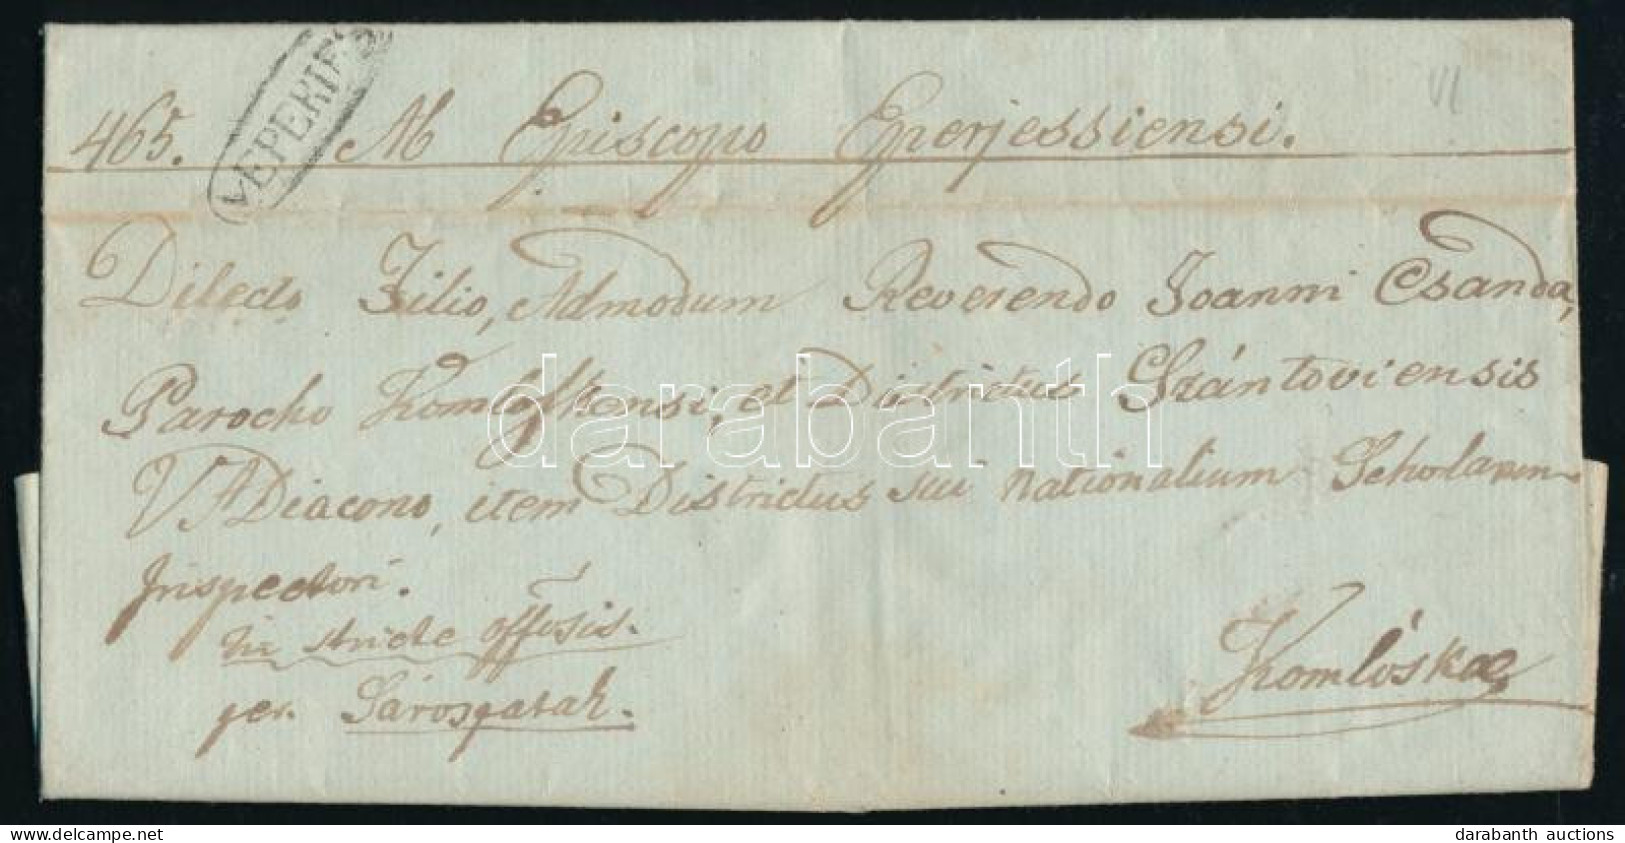 v. EPERIES
VI
465. Ab Episcopo Eperjessiensi.
Dilecto Filio, Admodum Reverendo Joanni Csanda,
Parocho Komlóskensi, et Districtus Szántoviensis
V. A Diacono, item Districtus sui nationalium Scholarum
Inspectori.
officiosis.
per. Sárospatak.
Komlóskae
darabanth
darabanth auctions